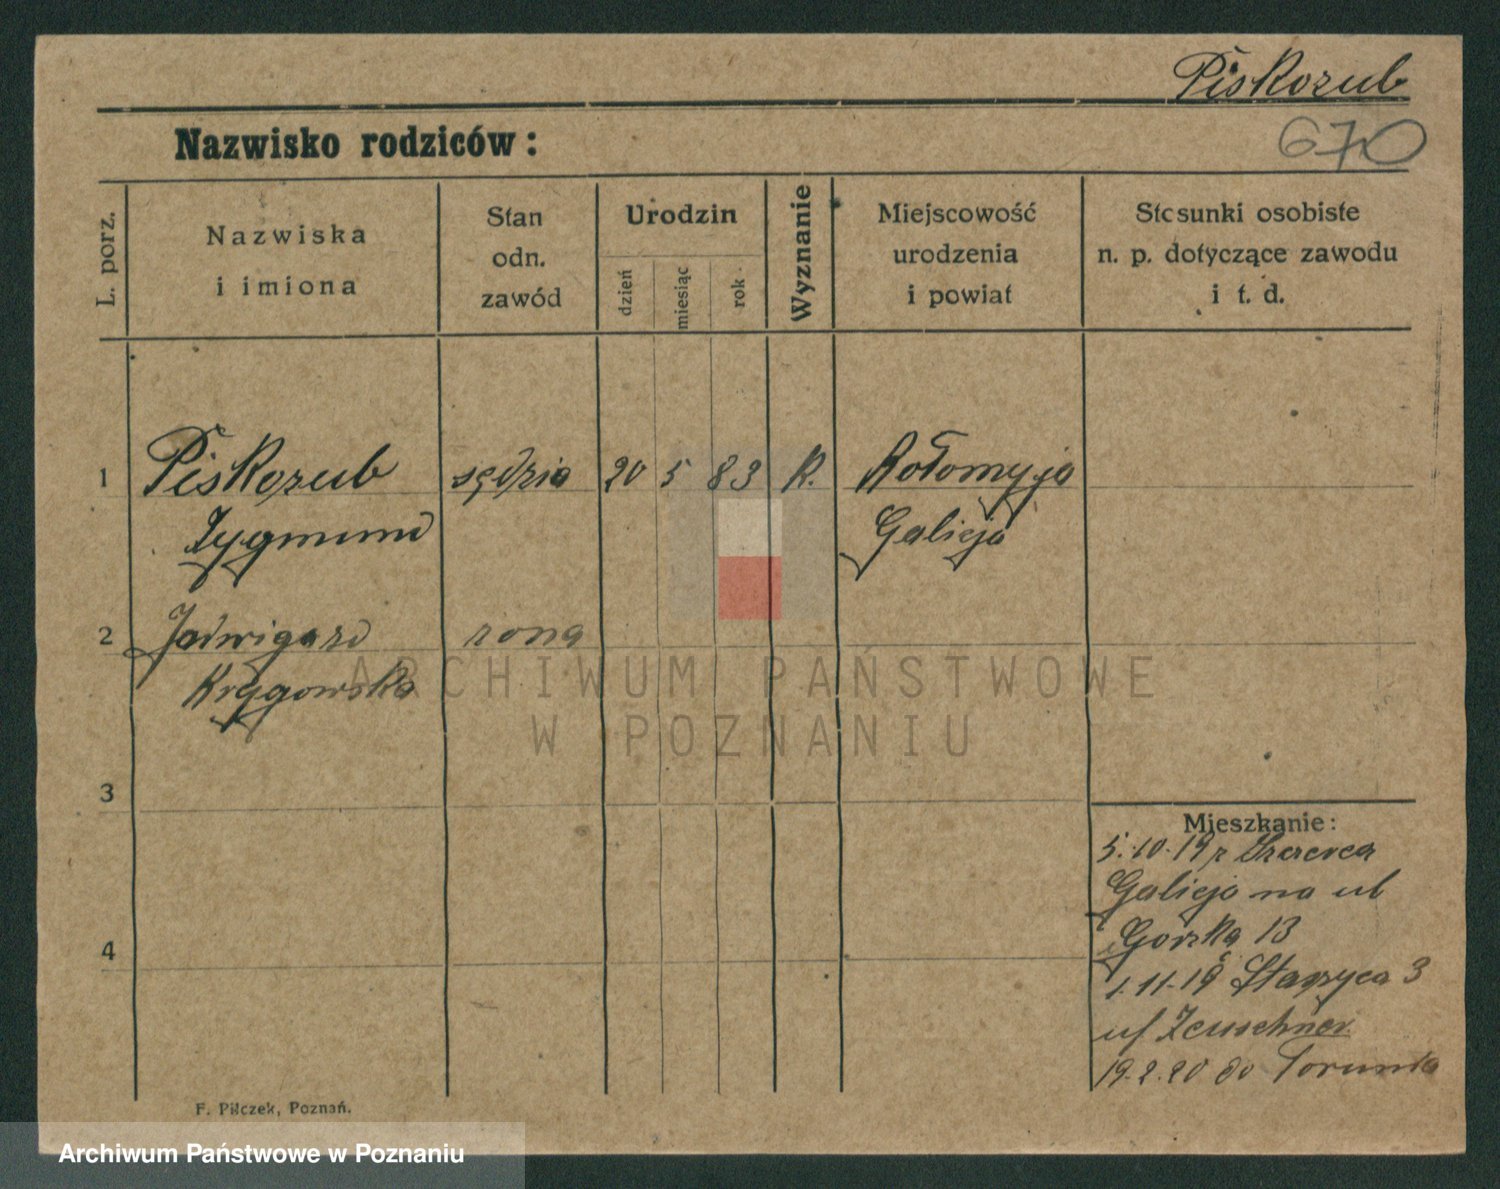 Piskozub
Nazwisko rodziców:
670
L. porz.
Nazwiska
i imiona
Stan
odn.
zawód
Urodzin
dzień
miesiąc
rok
Wyznanie
Miejscowość
urodzenia
i powiat
Stosunki osobiste
n. p. dotyczące zawodu
i t. d.
1 Piskozub sędzia 20 5 83 K. Kołomyja
Zygmund Galicja
2 Jadwiga zd żona
Kręgowska
ARCHIWUM PAŃSTWOWE
W POZNANIU
3
Mieszkanie:
5.10.19 z
Galicja na ul
Górska 13
4
1.11.19 Staszyca 3
u/ Zeuschner
19.2.20 do Torunia
F. Pilczek, Poznań.
Archiwum Państwowe w Poznaniu